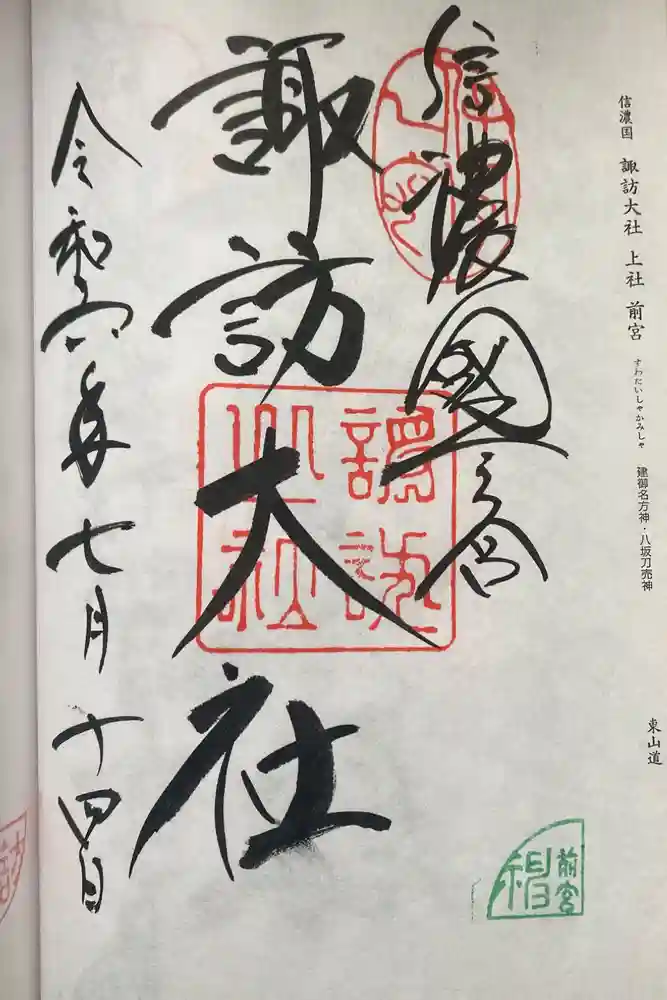 信濃国 諏訪大社 上社 前宮 すわたいしゃかみしゃ 建御名方神・八坂刀売神 東山道
信濃國一之宮
諏訪大社
令和六年七月十四日
諏訪
大社
前宮